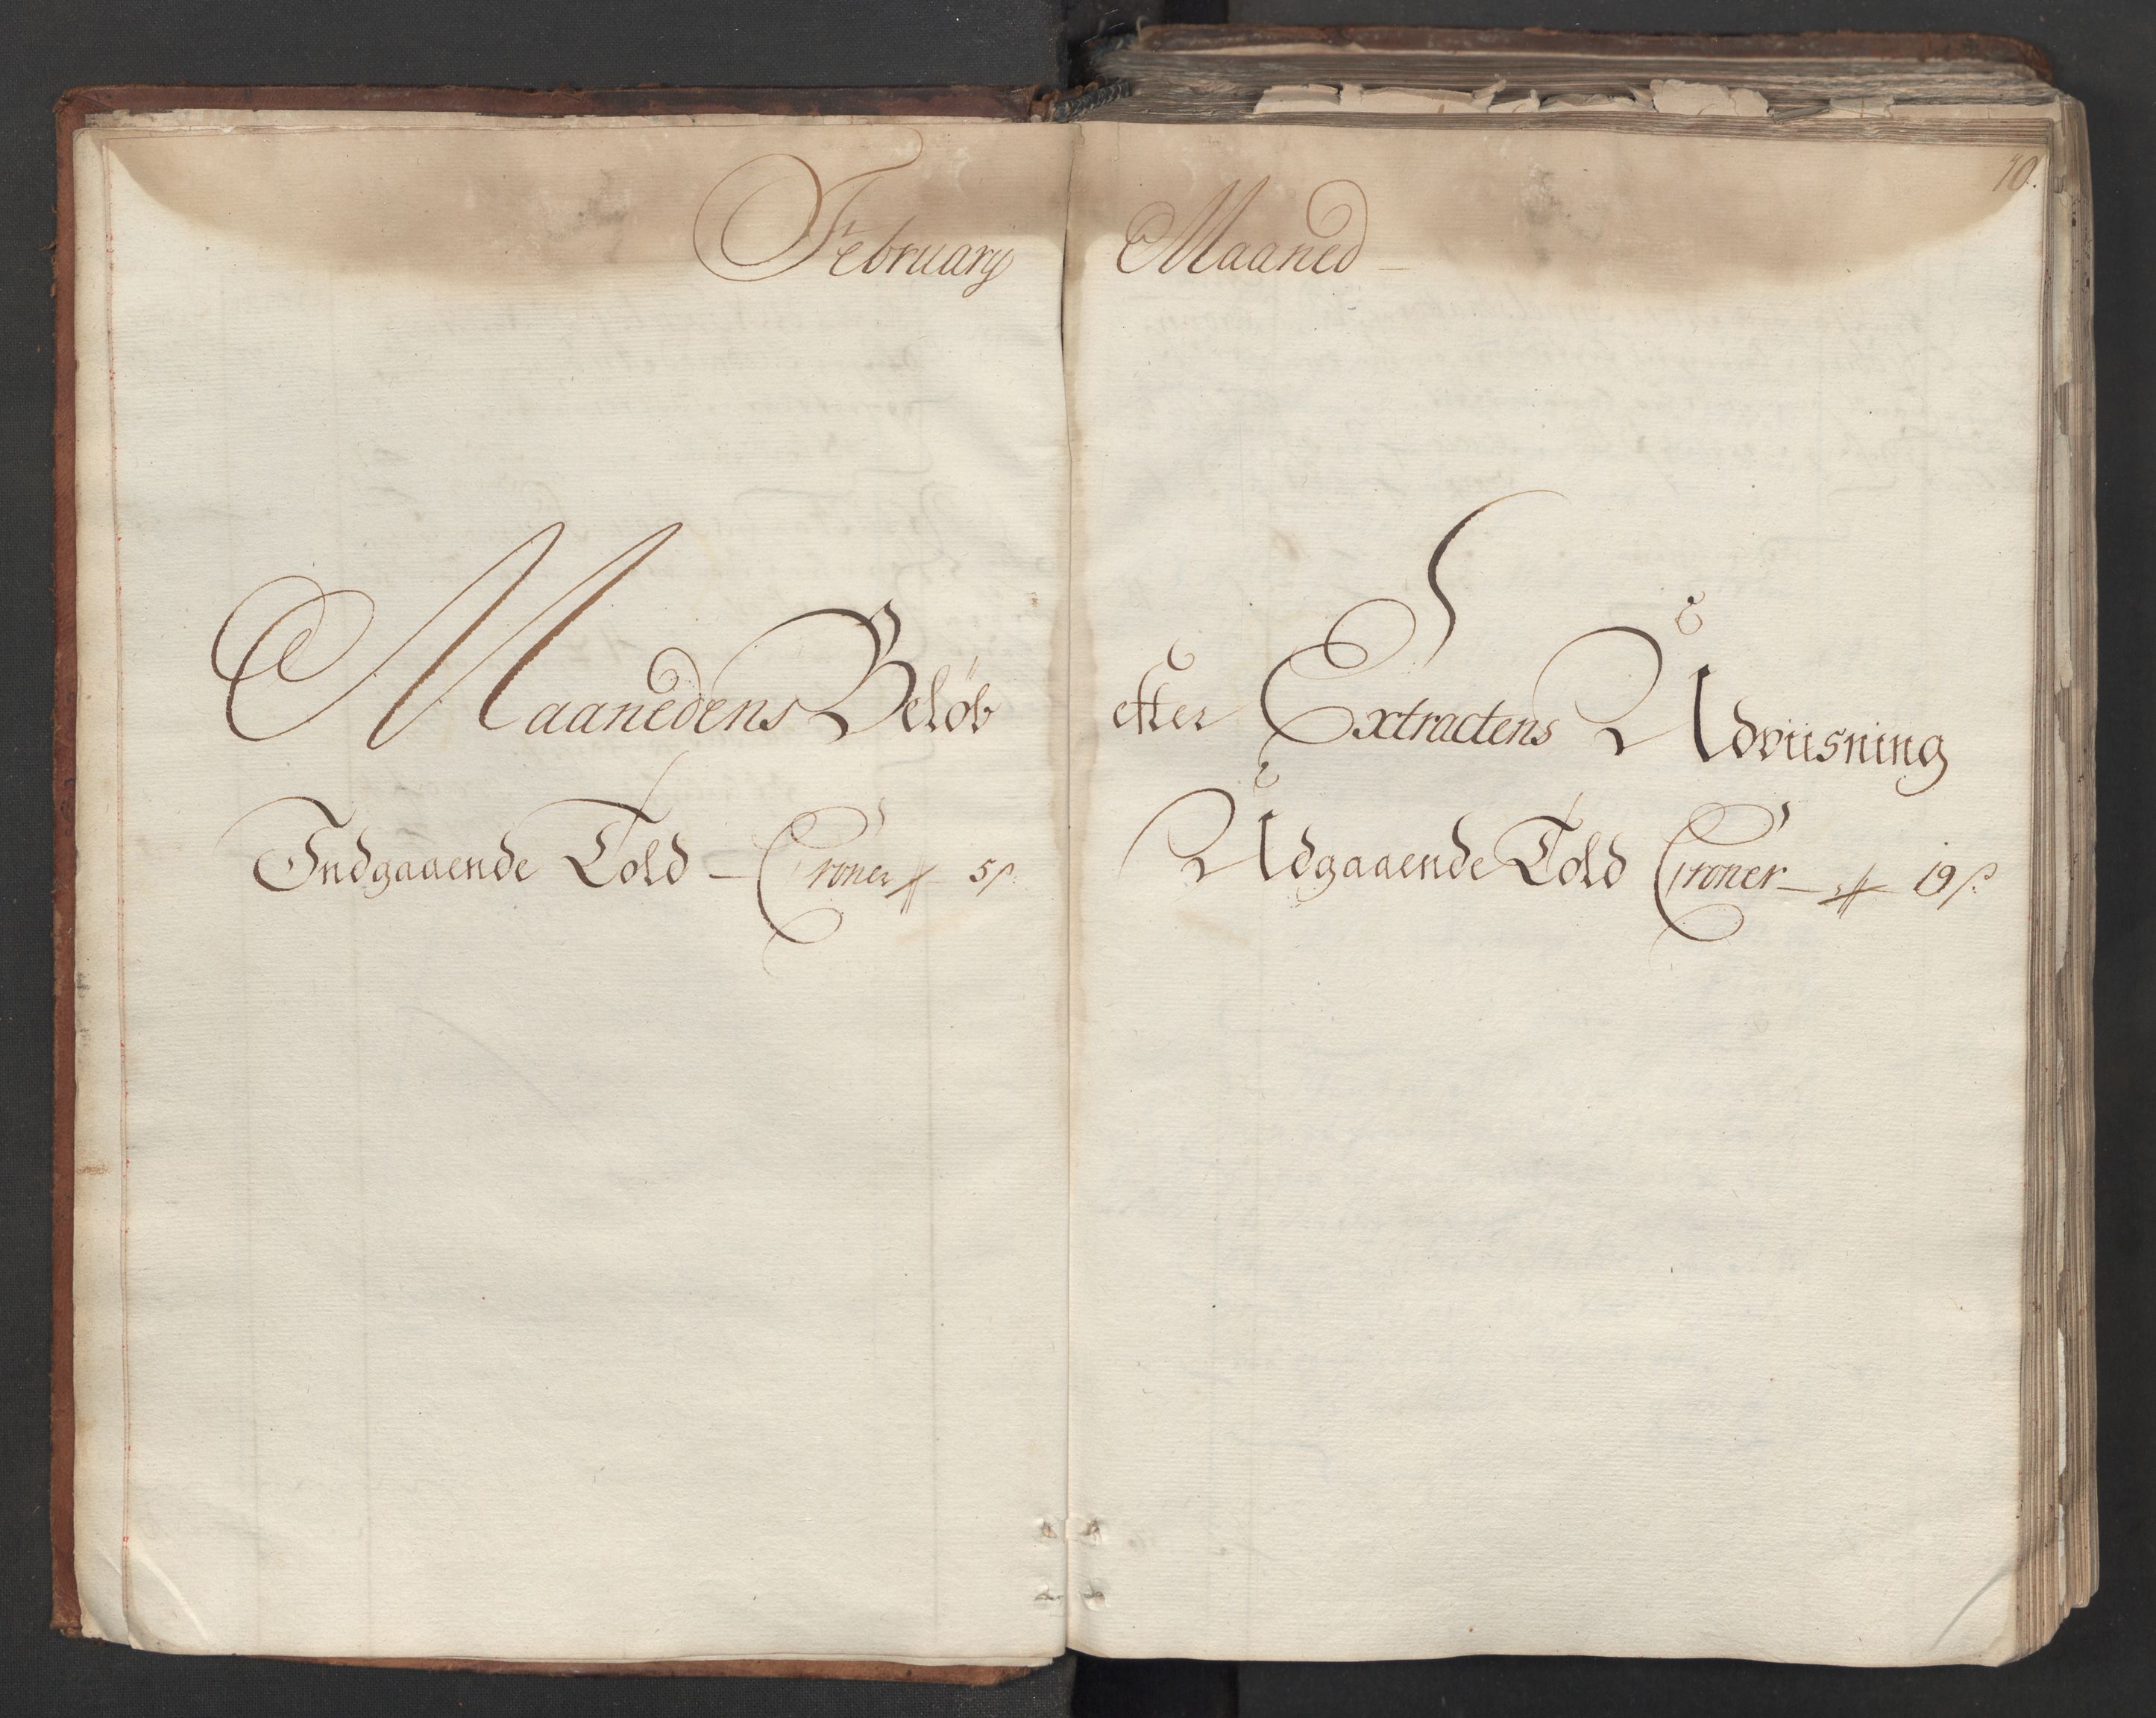 10.
February Maaned
Maanedens Beløb efter Extractens Udviisning
Indgaaende Told Croner 5 ß
Udgaaende Told Croner 19 ß